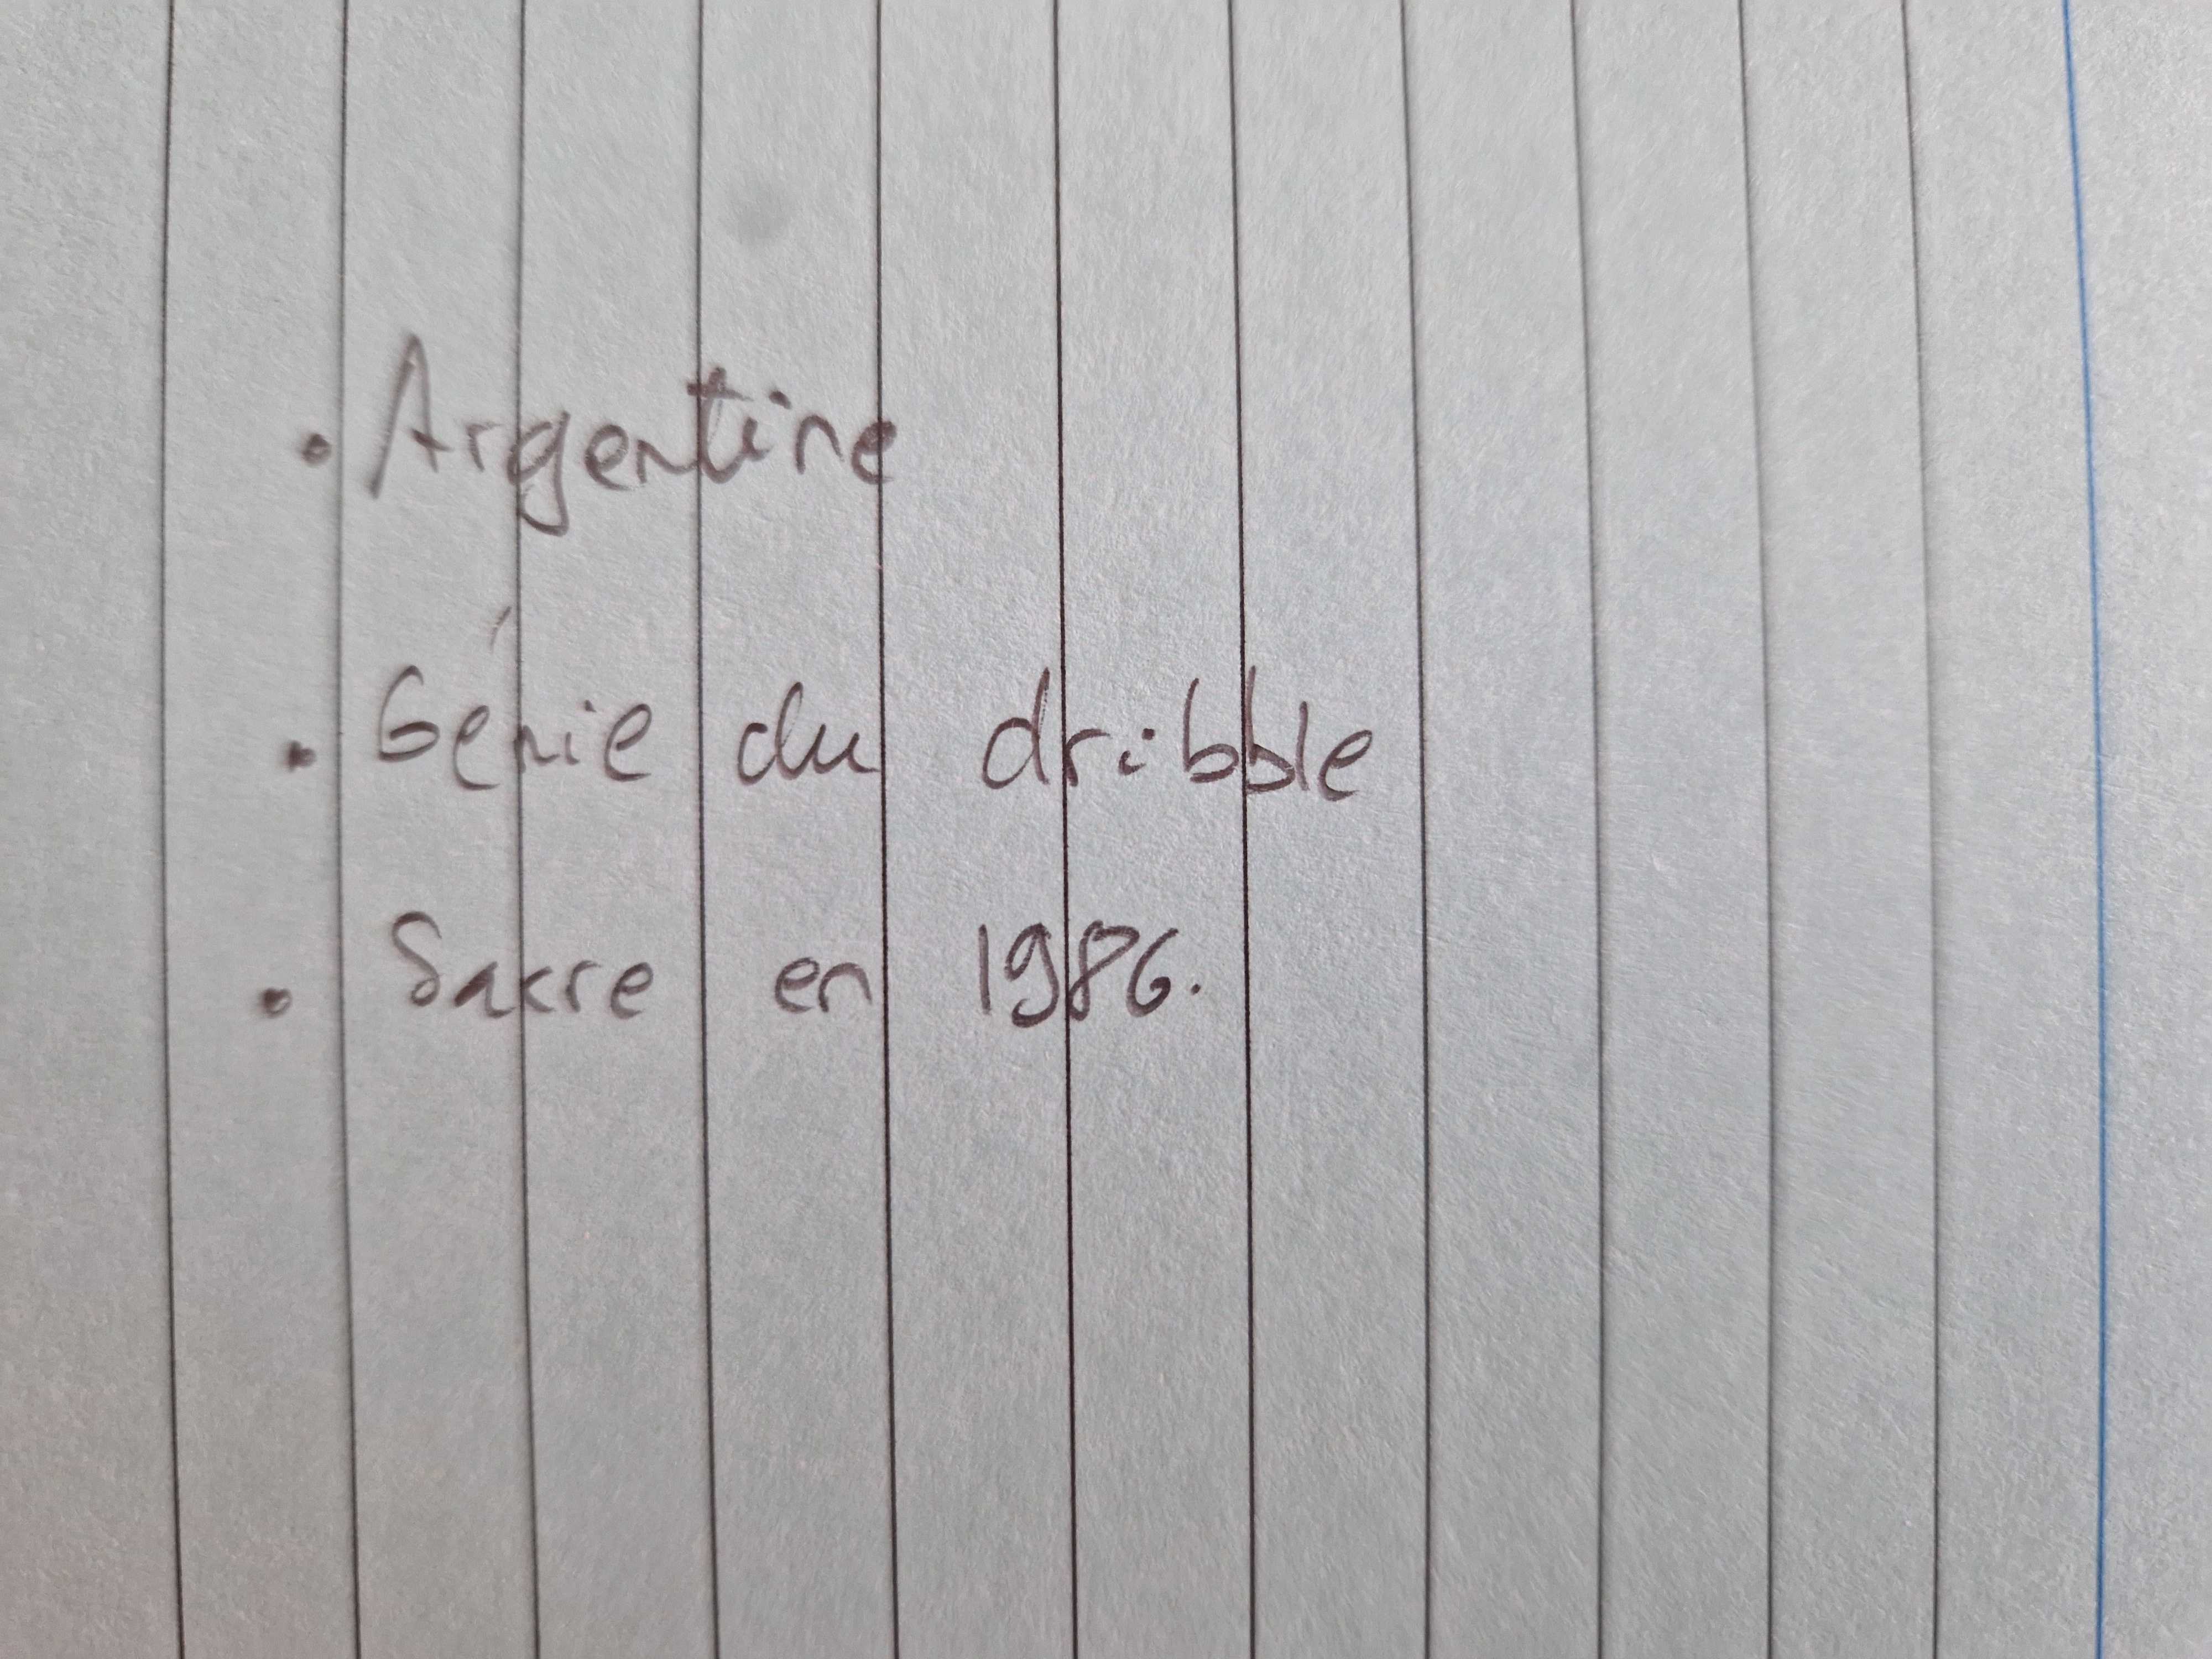 • Argentine
• Génie du dribble
• Sacre en 1986.